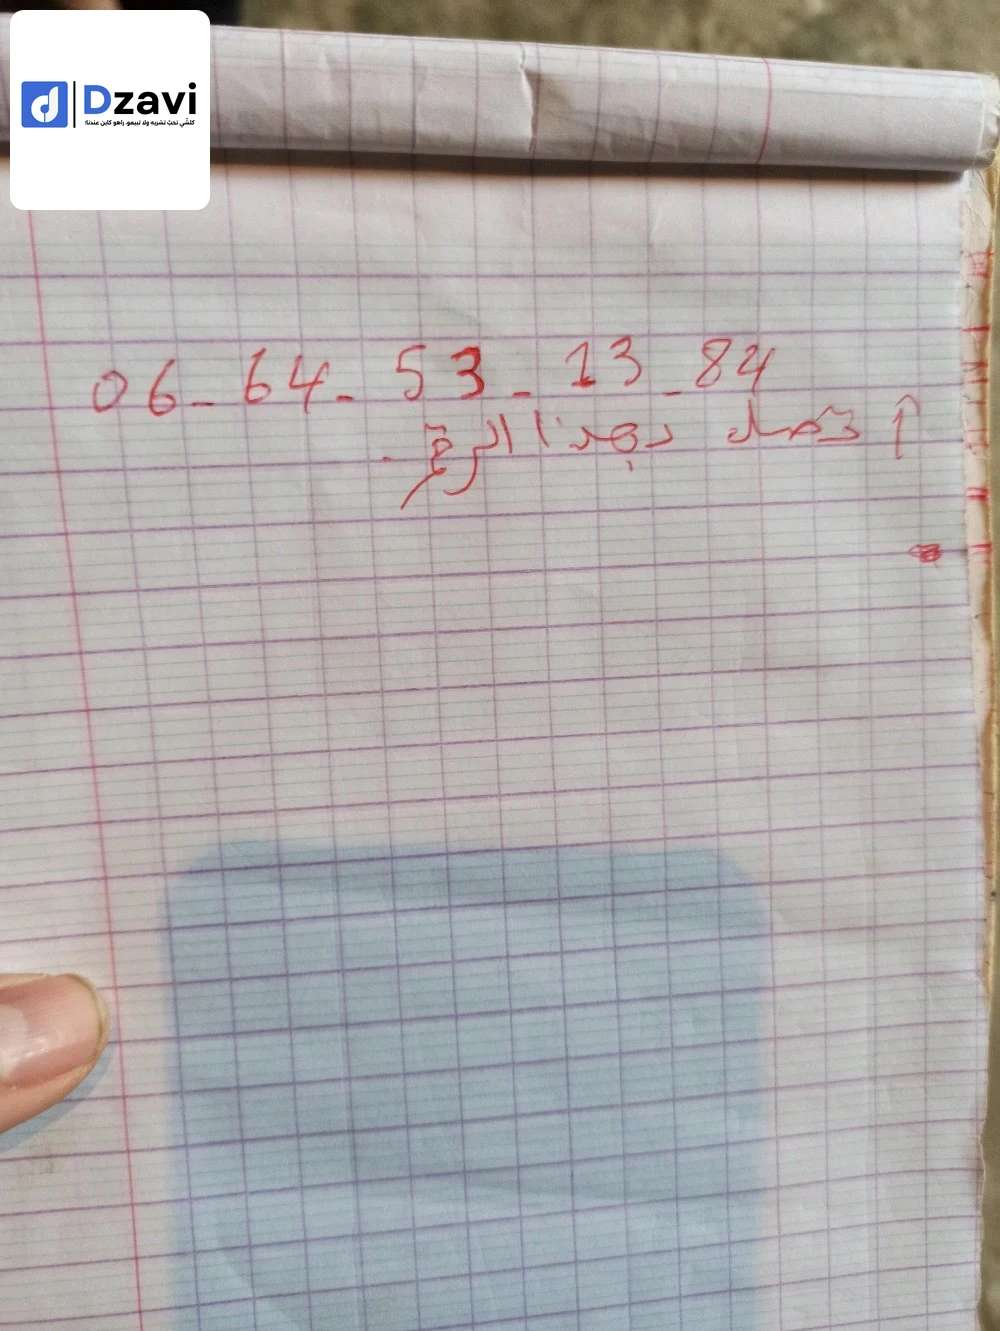 Dzavi
كلشي تحبّ تشريه ولا تبيعو، راهو كاين عندنا!
06_64_53_13_84
أتصل بهذا الرقم.